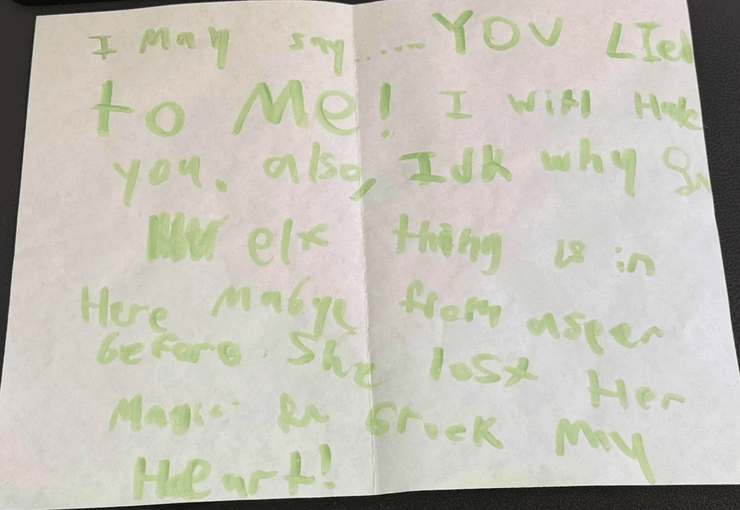 I May say..... YOU LIed
to Me! I will Hate
you. also, Idk why
elx thing is in
Here Mabye from asper
before. She lost Her
Magic Grock My
Haeart!